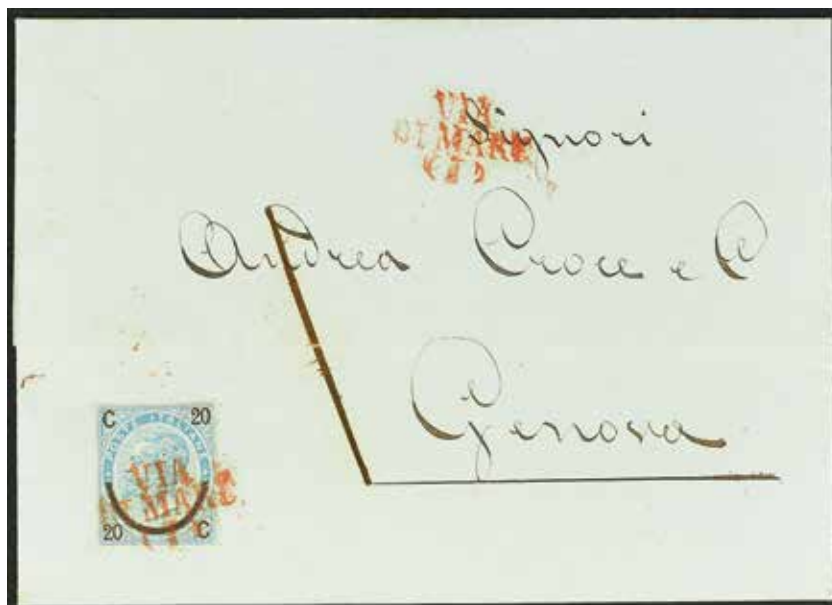 VIA
DI MARE
Signori
Andrea Croce e C
Genova
C 20
VIA
DI MARE
20 C